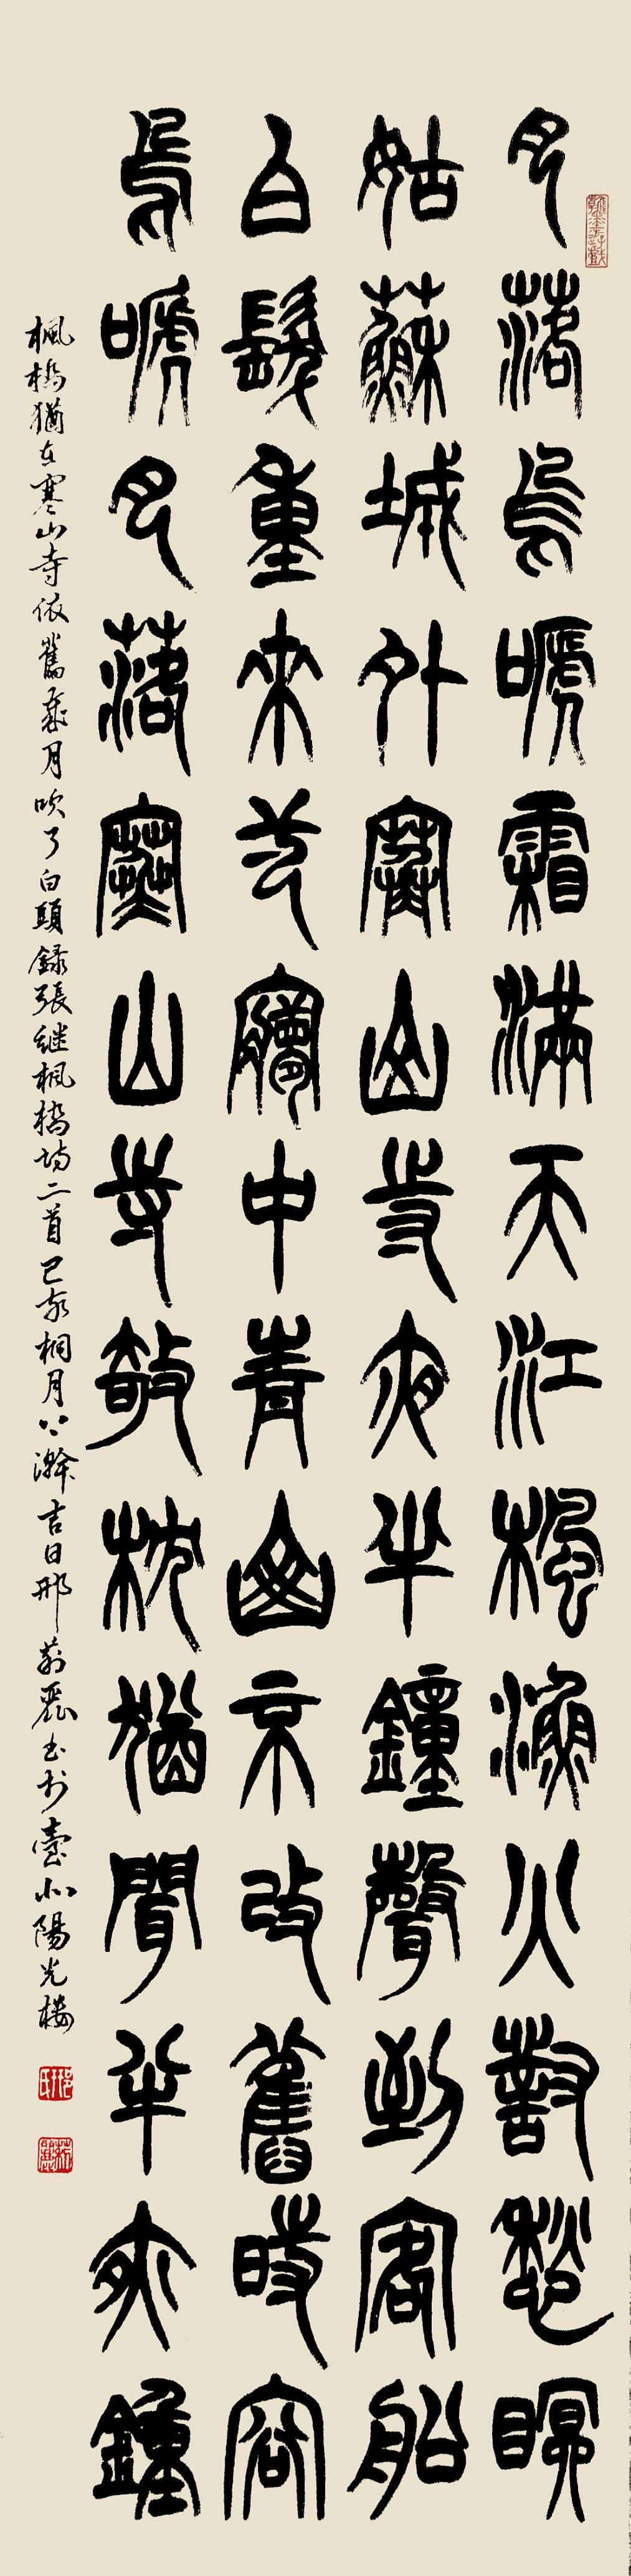 月落烏嗁霜滿天江楓漁火對愁眠
姑蘇城外寒山寺夜半鐘聲到客船
白髮重來弌夢中青山不改舊時容
烏嗁月落寒山寺敧枕猶聞半夜鐘
楓橋猶在寒山寺依舊歲月吹了白頭錄張继楓橋詩二首己亥桐月下澣吉日邢莉麗書於臺北陽光樓